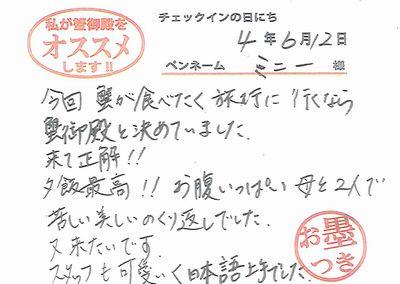 私が蟹御殿を
オススメ
します!!
チェックインの日にち
4年6月12日
ペンネーム ミニー 様
今回 蟹が食べたく 旅行に行くなら
蟹御殿と決めていました.
来て正解!!
夕飯最高!! お腹いっぱい 母と2人で
苦しい美しいのくり返しでした.
又来たいです.
スタッフも可愛いく日本語上手でした.
お墨
つき